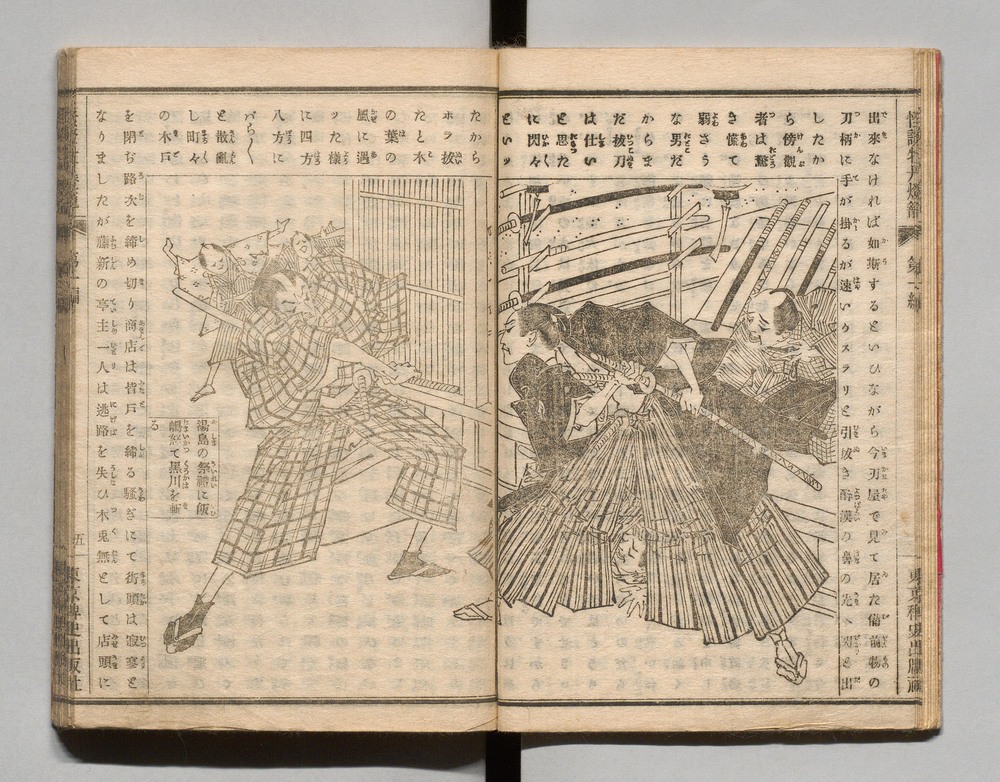 怪談牡丹燈籠
第一編
出來なければ如斯するといひながら今刃屋で見て居た備前物の
刀柄に手が掛るが速いかスラリと引放き醉漢の鼻の先へ刃を出
したか
ら傍觀
者は驚
き慌て
弱さう
な男だ
からま
だ拔刀
は仕い
と思た
に閃々
といッ
たから
ホラ拔
たと木
の葉の
風に遇
ッた樣
に四方
八方に
バラ〱
と散亂
し町々
の木戸
を閉ぢ路次を締め切り商店は皆戸を締る騷ぎにて街頭は寂寥と
なりましたが藤新の亭主一人は逃路を失ひ木兎無として店頭に
湯島の祭禮に飯
嶋怒て黑川を斬
る
五
東京稗史出版社